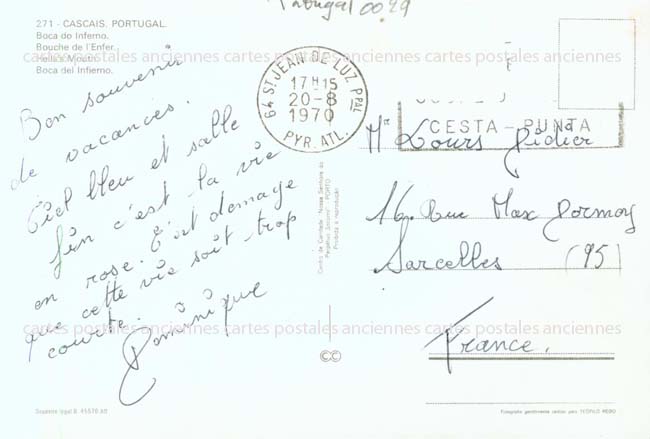 Portugal 0029
271 - CASCAIS. PORTUGAL.
Boca do Inferno.
Bouche de l'Enfer.
Hell's Mouth.
Boca del Infierno.
cartes postales anciennes cartes postales anciennes cartes postales anciennes
Bon souvenir
de vacances.
Ciel bleu et salle
fin c'est la vie
en rose. C'est domage
que cette vie soit trop
courte.
Dominique
64 ST JEAN DE LUZ PPAL
17H15
20-8
1970
PYR. ATL.
CESTA-PUNTA
Mr Lours Didier
16 Rue Max Dormoy
Sarcelles (95)
France.
cartes postales anciennes cartes postales anciennes cartes postales anciennes
Centro de Caridade "Nossa Senhora do
Perpétuo Socorro" PORTO
Proibida a reprodução
CC
Depósito legal B. 45570 XII
Fotografia gentilmente cedida pelo TEÓFILO REGO